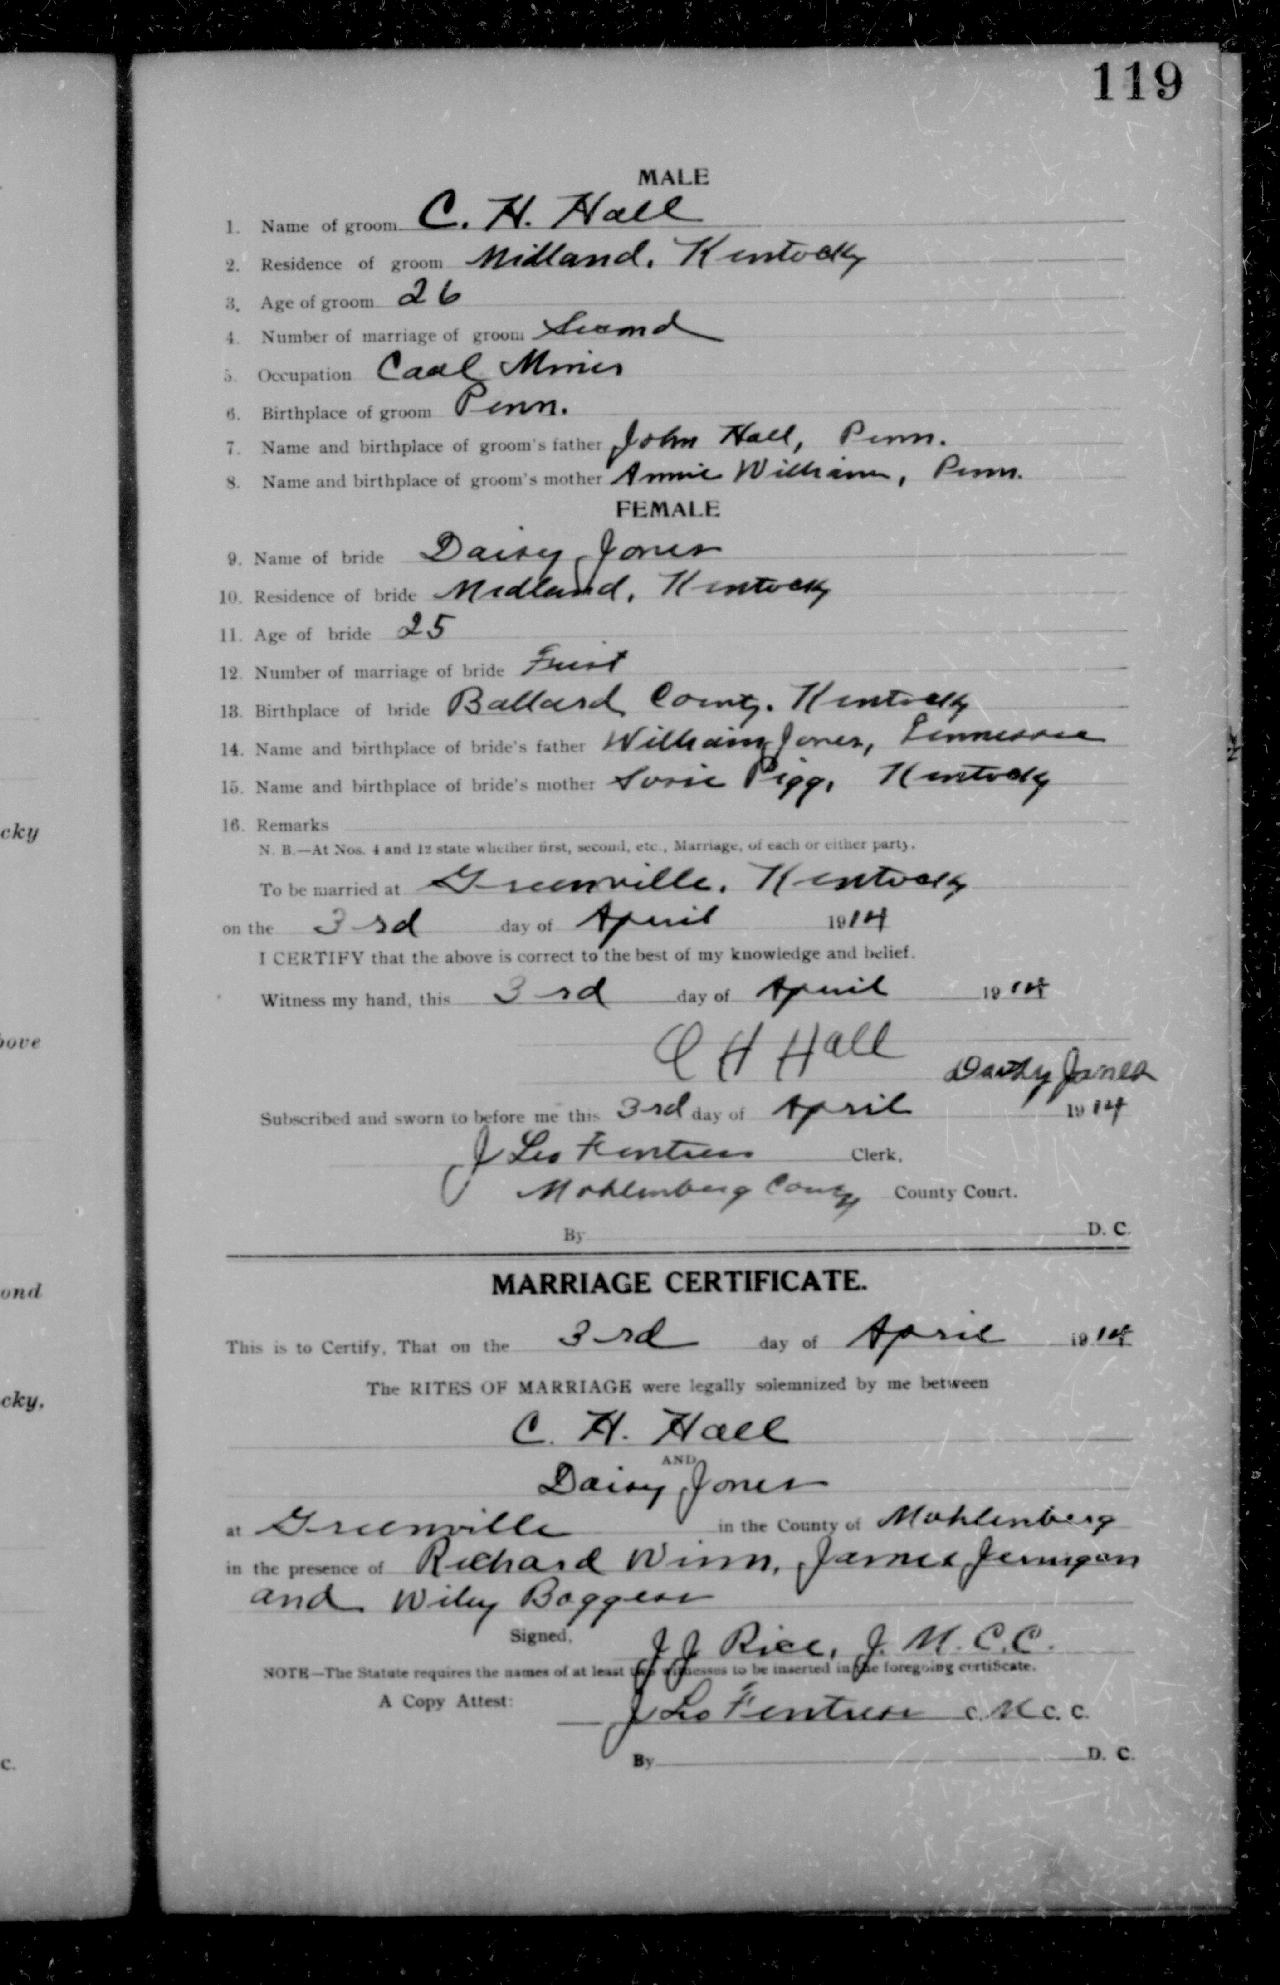 119
MALE
1. Name of groom C. H. Hall
2. Residence of groom Midland, Kentucky
3. Age of groom 26
4. Number of marriage of groom Second
5. Occupation Coal Miner
6. Birthplace of groom Penn.
7. Name and birthplace of groom's father John Hall, Penn.
8. Name and birthplace of groom's mother Annie Williams, Penn.
FEMALE
9. Name of bride Daisy Jones
10. Residence of bride Midland, Kentucky
11. Age of bride 25
12. Number of marriage of bride First
13. Birthplace of bride Ballard County, Kentucky
14. Name and birthplace of bride's father William Jones, Tennessee
15. Name and birthplace of bride's mother Susie Pigg, Kentucky
16. Remarks
cky
N. B.—At Nos. 4 and 12 state whether first, second, etc., Marriage, of each or either party.
To be married at Greenville, Kentucky
on the 3rd day of April 1914
I CERTIFY that the above is correct to the best of my knowledge and belief.
Witness my hand, this 3rd day of April 1914
ove
C H Hall Daisy Jones
Subscribed and sworn to before me this 3rd day of April 1914
J Leo Fentress Clerk,
Muhlenberg County County Court.
By D. C.
MARRIAGE CERTIFICATE.
ond
This is to Certify, That on the 3rd day of April 1914
The RITES OF MARRIAGE were legally solemnized by me between
cky,
C. H. Hall
AND
Daisy Jones
at Greenville in the County of Muhlenberg
in the presence of Richard Winn, James Jernigan
and Wiley Boggess
Signed, J J Rice, J. M. C. C.
NOTE—The Statute requires the names of at least two witnesses to be inserted in the foregoing certificate.
A Copy Attest:
J Leo Fentress C. M. C. C.
By D. C.
C.